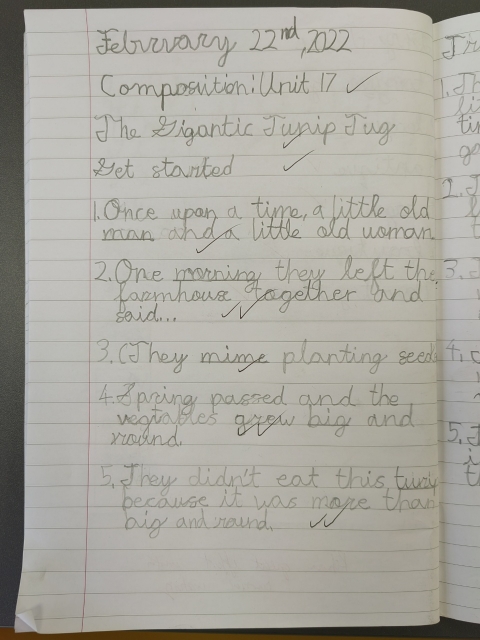 February 22nd, 2022
Composition: Unit 17
The Gigantic Turnip Tug
Get started
1. Once upon a time, a little old
man and a little old woman
2. One morning they left the
farmhouse together and
said...
3. (They mime planting seed
4. Spring passed and the
vegtables grew big and
round.
5. They didn't eat this
because it was more than
big and round.